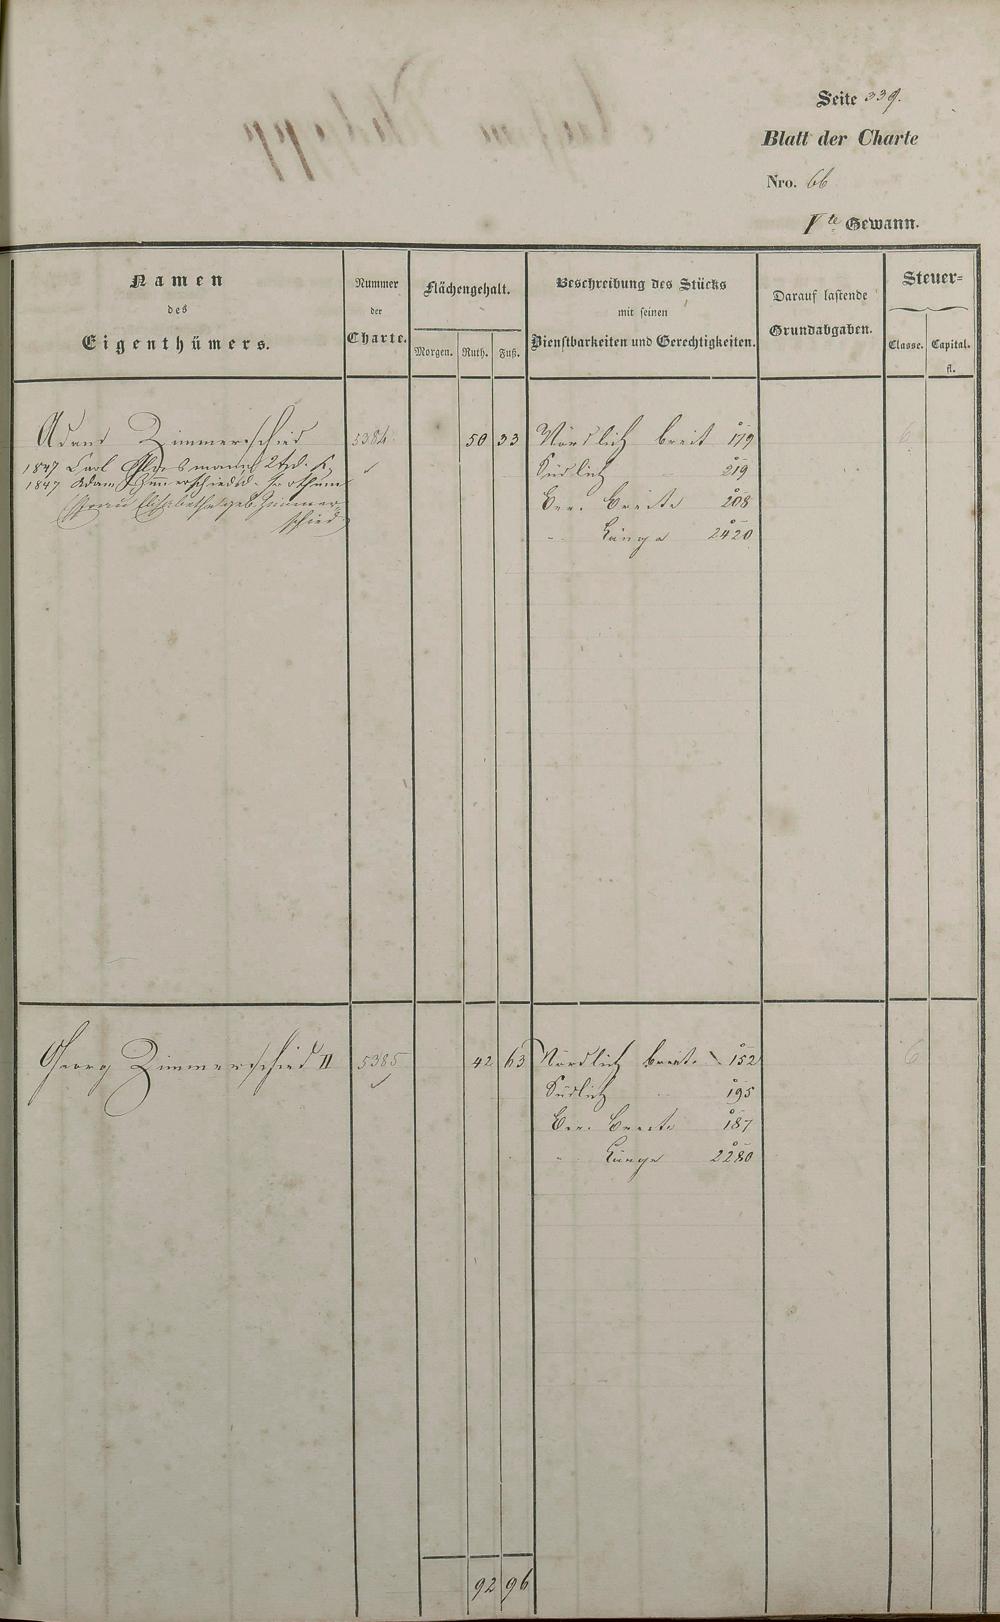 Seite 339.
Blatt der Charte
Nro. 66
Vte Gewann.
Namen
des
Eigenthümers.
Nummer
der
Charte.
Flächengehalt.
Morgen. Ruth. Fuß.
Beschreibung des Stücks
mit seinen
Dienstbarkeiten und Gerechtigkeiten.
Darauf lastende
Grundabgaben.
Steuer-
Classe. Capital.
fl.
Adam Zimmerschied 5384. 50 33 Nördlich breit 179 6
1847 Carl
Südlich 219
1847 Adam Zimmerschied
Frau Elisabetha geb. Zimmer-
schied
Breite 208
Länge 2420
Georg Zimmerschied II 5385 42 63 Nördlich breit 152 6
Südlich 195
Breite 187
Länge 2280
92 96